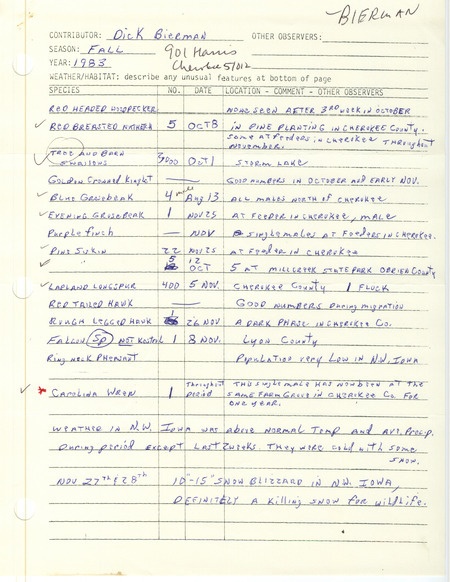 BIERMAN
CONTRIBUTOR: DICK BIERMAN OTHER OBSERVERS:
SEASON: FALL 901 Harris
YEAR: 1983 Cherokee 51012
WEATHER/HABITAT: describe any unusual features at bottom of page
SPECIES NO. DATE LOCATION - COMMENT - OTHER OBSERVERS
RED HEADED WOODPECKER NONE SEEN AFTER 3RD WEEK IN OCTOBER
RED BREASTED NUTHATCH 5 OCT 8 IN PINE PLANTING IN CHEROKEE COUNTY.
Some at Feeders in Cherokee Throughout
November.
TREE AND BARN
SWALLOWS 3,000 OCT 1 STORM LAKE
GOLDEN CROWNED KINGLET — GOOD NUMBERS IN OCTOBER AND EARLY NOV.
BLUE GROSBEAK 4 males Aug 13 ALL MALES NORTH OF CHEROKEE
EVENING GROSBEAK 1 NOV 25 AT FEEDER IN CHEROKEE, MALE
Purple finch — NOV Single males at Feeders in Cherokee.
PINE SISKIN 22 NOV 25 AT Feeder IN CHEROKEE
5 12 OCT 5 AT MILLCREEK STATE PARK OBRIEN COUNTY
LAPLAND LONGSPUR 400 5 NOV. CHEROKEE COUNTY 1 FLOCK
RED TAILED HAWK — GOOD NUMBERS During migration
ROUGH LEGGED HAWK 1 26 NOV A DARK PHASE IN CHEROKEE CO.
FALCON SP NOT Kestrel 1 8 NOV. Lyon County
Ring neck PHEASANT Population very Low in N.W. Iowa
CAROLINA WREN 1 Throughout period THIS single male HAS now been AT THE
SAME FARM GROVE IN CHEROKEE Co FOR
ONE YEAR.
WEATHER IN N.W. IOWA WAS ABOVE NORMAL Temp AND AVE. Precip.
During period EXCEPT LAST 2 weeks. They were cold with some
SNOW.
NOV 27th & 28th 10"-15" SNOW BLIZZARD IN N.W. IOWA,
DEFINITELY A killing SNOW for wildlife.